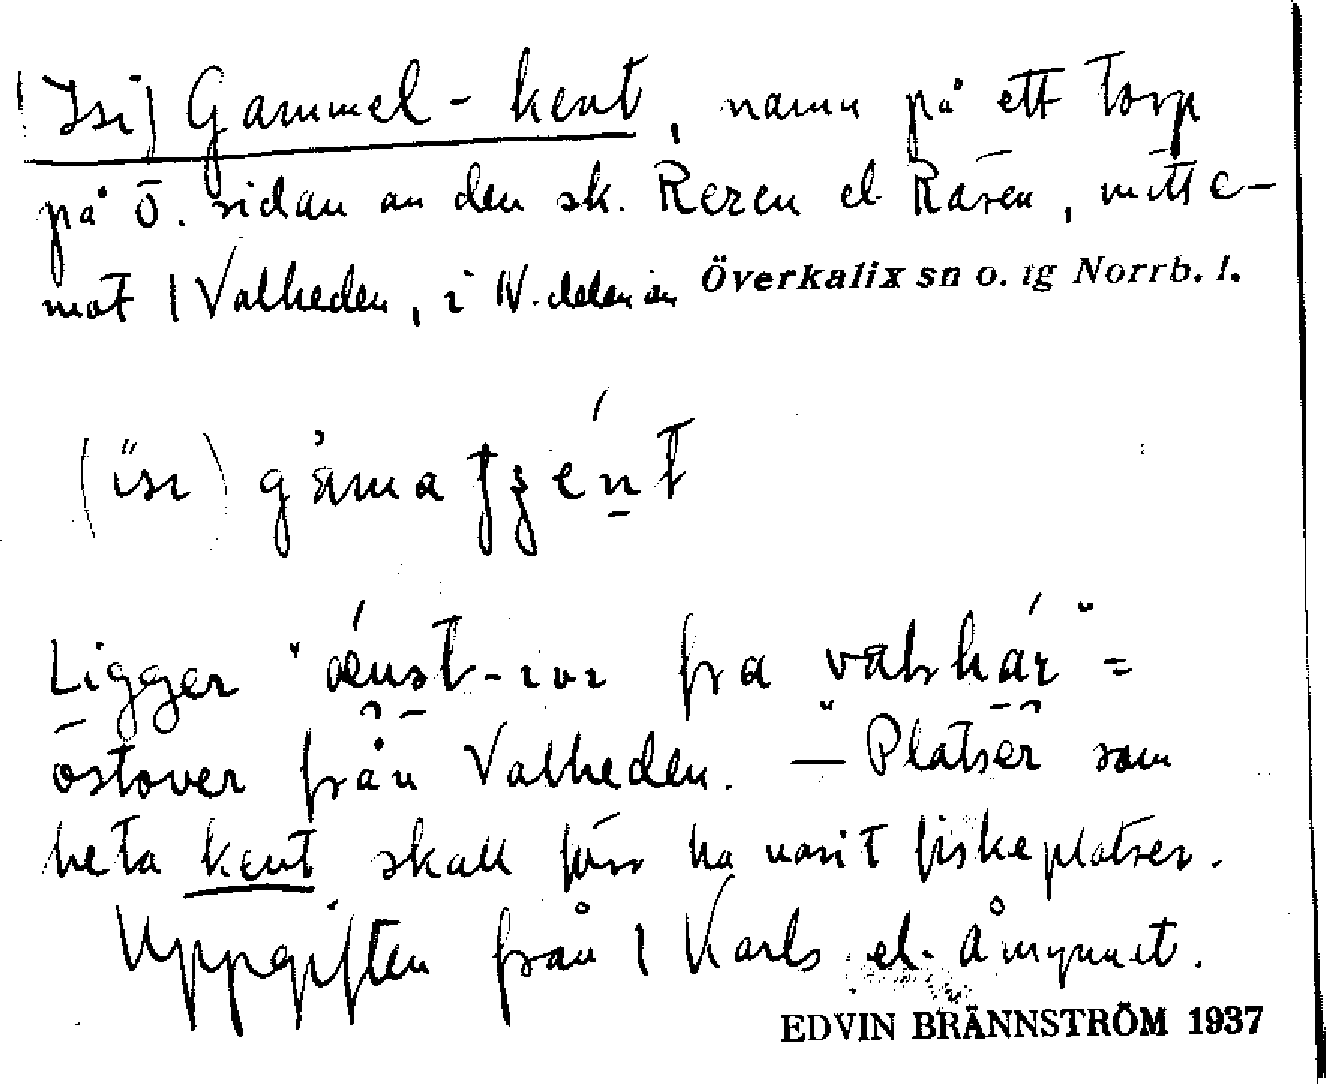 [Isi] Gammel-kent, namn på ett torp
på Ö. sidan av den sk. Rezen el Räsen, mitt e-
mot 1 Valheden, i N. delen av Överkalix sn o. tg Norrb. l.
(isı) gåma tʒént
Ligger "fra =
östover från Valheden. — Platser som
heta kent skall förr ha varit fiskeplatser.
Uppgiften från 1 Karls el. Åmynnet.
EDVIN BRÄNNSTRÖM 1937